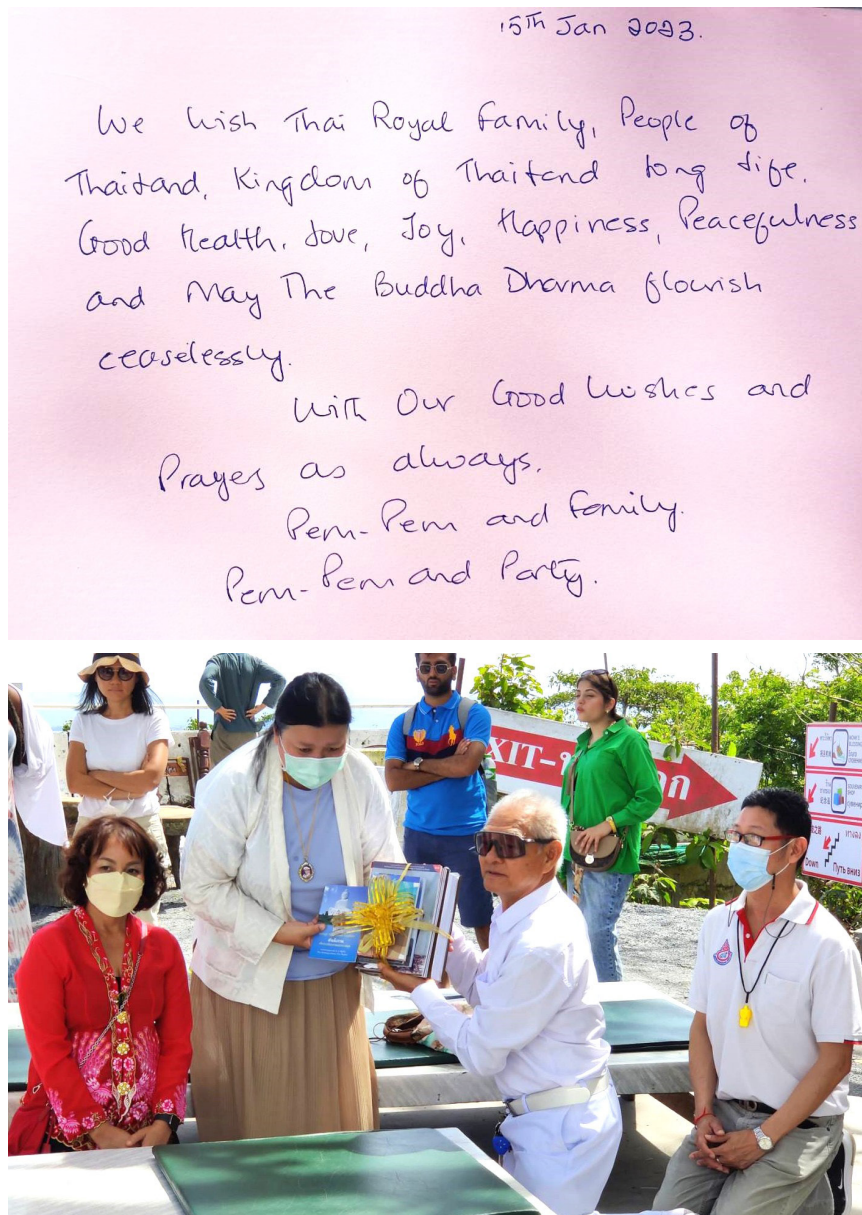 15th Jan 2023.
We wish Thai Royal family, People of
Thailand, Kingdom of Thailand long life.
Good Health, love, Joy, Happiness, Peacefulness
and May The Buddha Dharma flourish
ceaselessly.
With Our Good Wishes and
Prayes as always.
Pem-Pem and family.
Pem-Pem and Party.
EXIT-
Down
Путь вниз